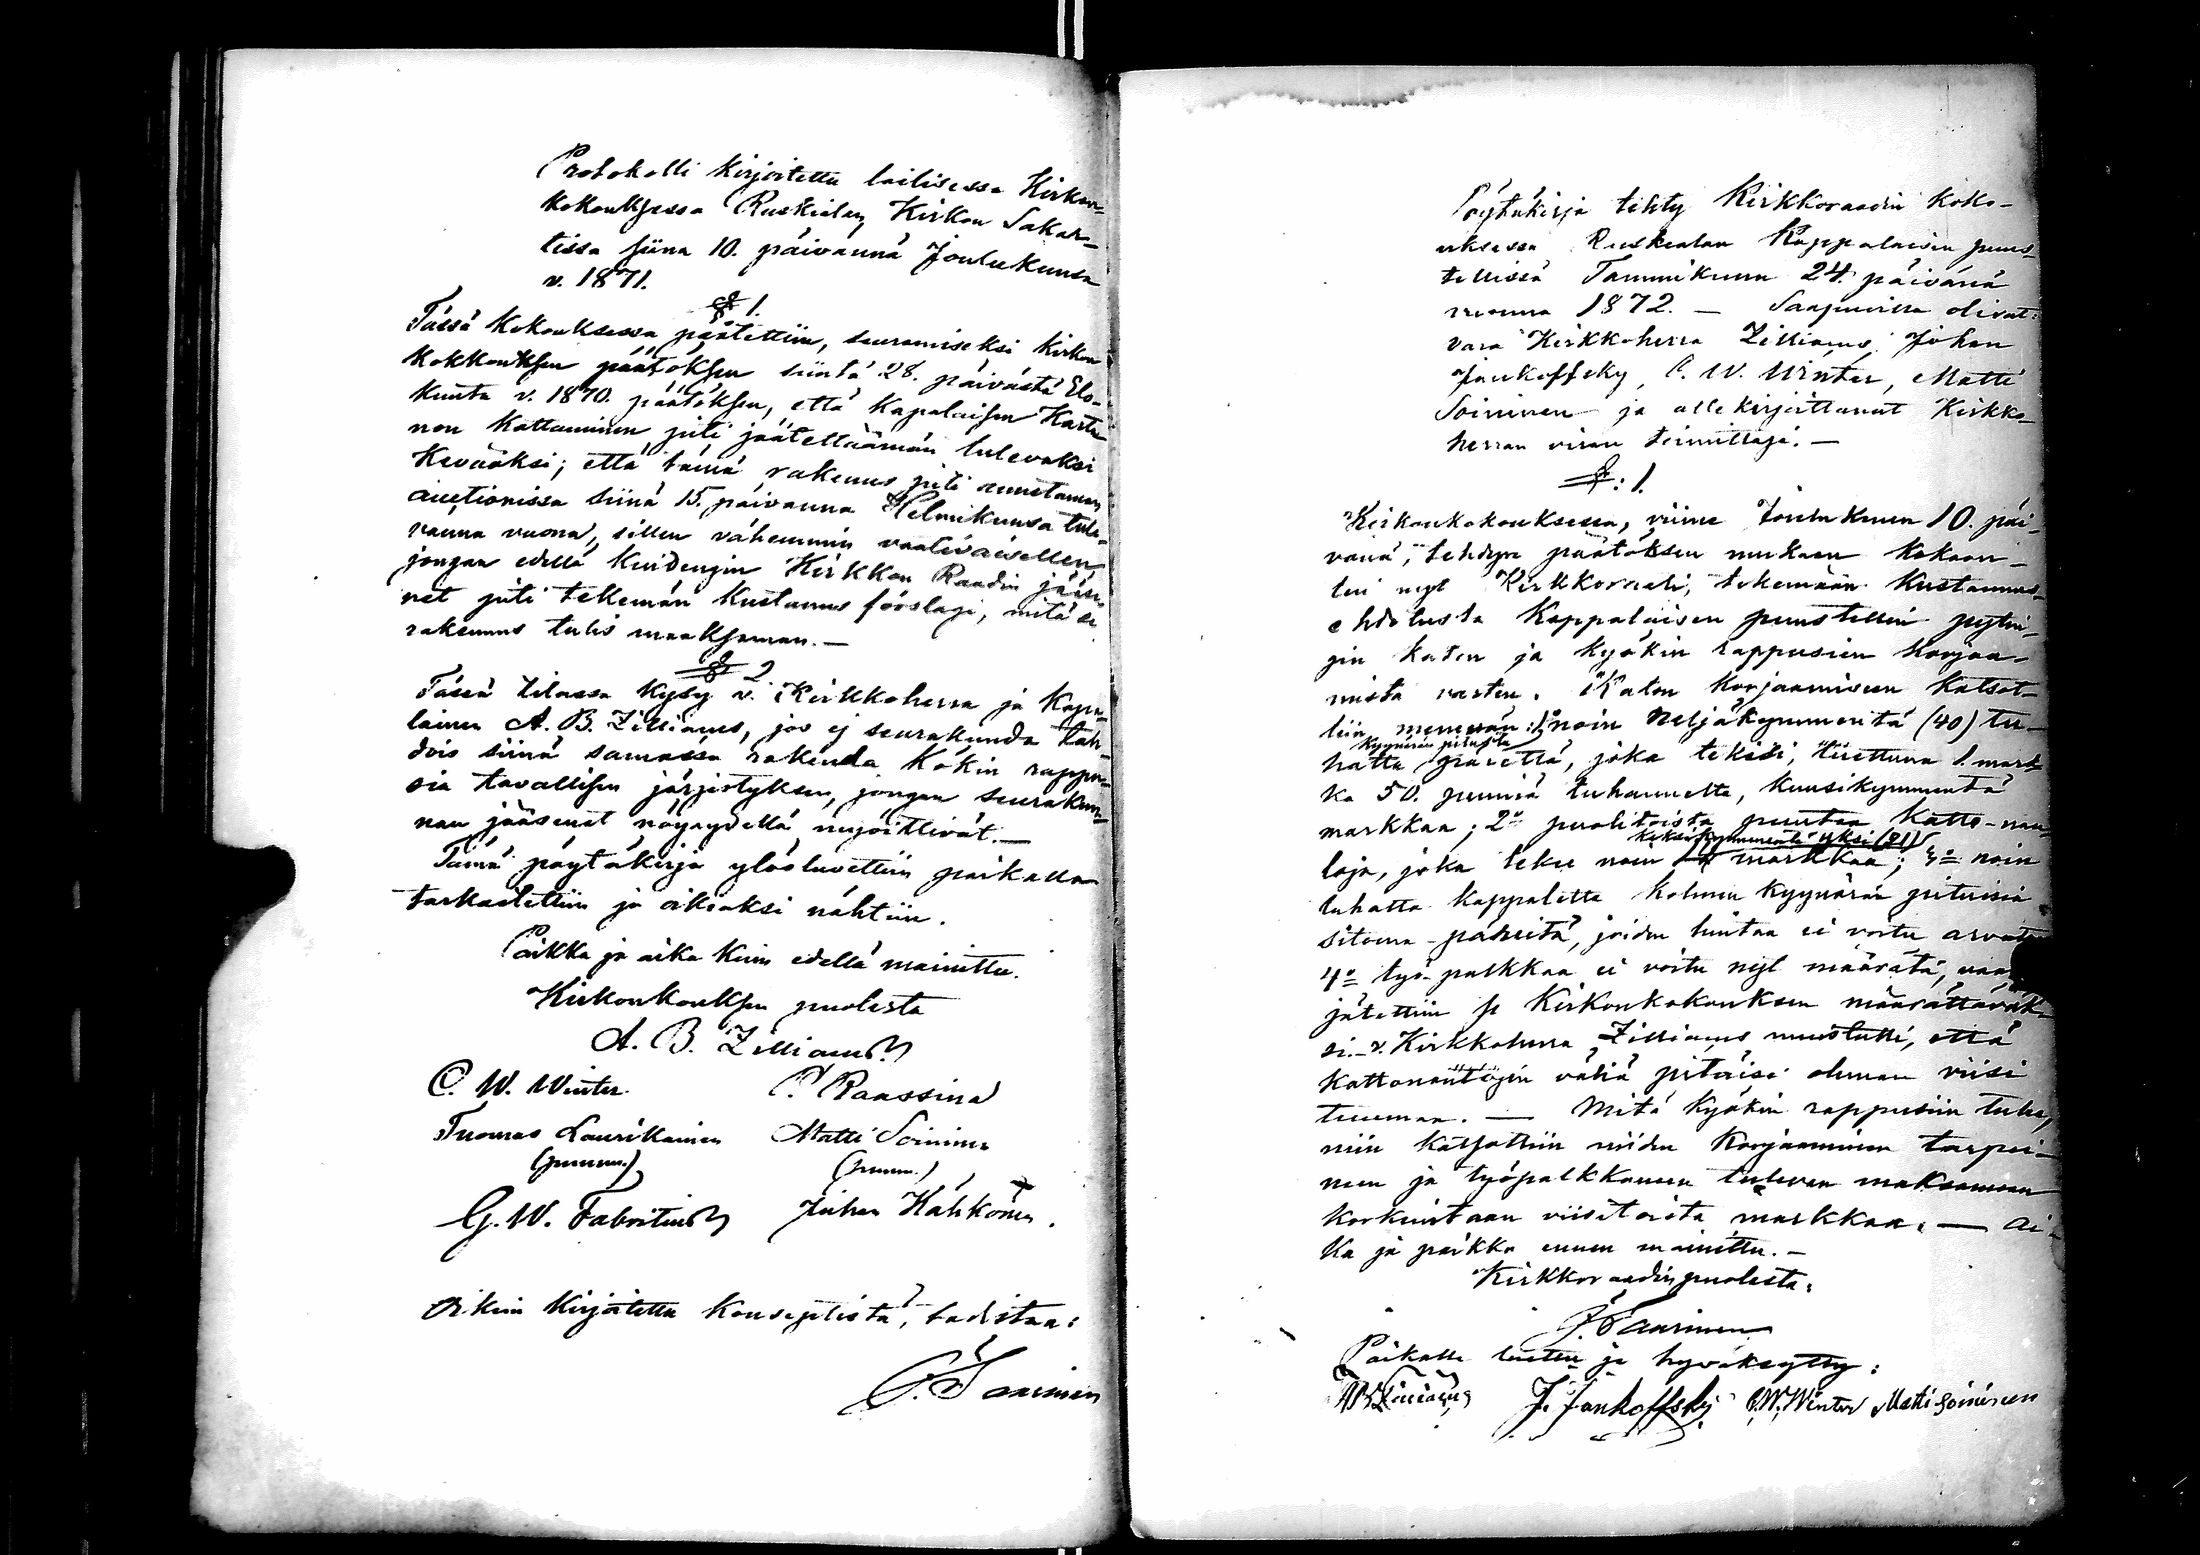 Protokolli kirjoitettu lailisessa Kirkon-
kokouksessa Ruskialan Kirkon Sakas-
tissa siina 10. päivännä Joulukuusa
v. 1871.
§ 1.
Tässä Kokouksessa päätettiin, seuramiseksi kirkon
kokkouksen päätöksen siintä 28. päivästä Elo-
kuuta v. 1870. päätöksen, että Kapalaisen Karta-
non Kattaminen piti jäätettäämän tulevaksi
Kevääksi; että tämä rakenus piti
auctionissa siinä 15. päivännä Helmikuusa tule-
vanna vuona, sillen vähemmin vaativaisellen
jongan edellä Kuidengin Kirkkon Raadin jäise-
net piti tekemän Kustanus förslagi, mitä se
rakennus tulis maaksaman. —
§ 2
Tässä tilassa kysy v. Kirkkoherra ja Kapa-
lainen A. B. Zilliacus, jos ej seurakunda tah-
dois siinä samassa rakenda Kökin rappu-
sia tavallisen järjestyksen, jongan seurakun-
nan jääsenet
Tämä pöytäkirja ylösluvettiin paikalla
tarkastettiin ja oikiaksi nähtiin.
Paikka ja aika kuin edellä mainittu.
Kirkonkouksen puolesta
A. B. Zilliacus
C. W. Winter P. Raassina
Tuomas Laurikainen Matti Soininen
(puum.) (puum.)
G. W. Fabritius Juhan Hähkönen.
Oikein kirjoitettu konseptista, todistaa:
P. Taarinen
Pöytäkirja tehty Kirkkoraadin koko-
uksessa Ruskealan Kappalaisen puus-
tellissä Tammikuun 24. päivänä
vuonna 1872. — Saapuvilla olivat:
vara Kirkkoherra Zilliacus, Johan
Jankoffsky, C. W. Winter, Matti
Soininen ja allekirjoittanut Kirkko-
herran viran toimittaja. —
§: 1.
Kirkonkokouksessa, viime Joulukuun 10. päi-
vänä, tehdyn päätöksen mukaan kokoon-
tui nyt Kirkkoraati, tekemään Kustannus-
ehdotusta Kappalaisen puustellin pytin-
gin katon ja kyökin rappusien korjaa-
mista varten. Katon korjaamiseen katsot-
tiin menevän: 1:o noin neljäkymmentä (40) tu-
kyynärän pituista
hatta pärettä, joka tekisi, luettuna 1. mark-
ka 50. penniä tuhannelta, kuusikymmentä
markkaa; 2:o puolitoista puutaa katto-nau-
kaksikymmentä yksi (21)
loja, joka tekee noin markkaa; 3:o noin
tuhatta kappaletta kolmen kyynärän pituisia
sitoma-pareita, joiden hintaa ei voitu arvata
4:o työ-palkkaa ei voitu nyt määrätä, vaan
jätettiin se Kirkonkokouksen määrättäväk-
si. — v. Kirkkoherra Zilliacus muistutti, että
kattonaulojen väliä pitäisi oleman viisi
tuumaa. — Mitä kyökin rappusiin tulee,
niin katsottiin niiden korjaaminen tarpei-
neen ja työpalkkaneen tulevan maksamaan
korkeintaan viisitoista markkaa. — Ai-
ka ja paikka ennen mainittu. —
Kirkkoraadin puolesta:
P. Taarinen
Paikalla luettu ja hyväksytty:
AB Zilliacus J. Jankoffsky C. W. Winter Matti Soininen